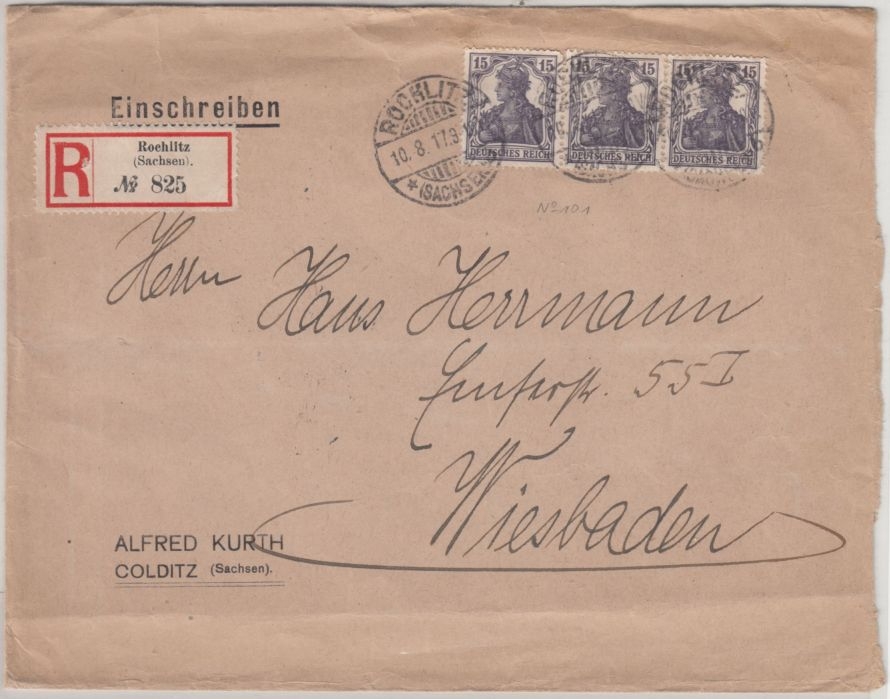 Einschreiben
R
Rochlitz
(Sachsen).
№ 825
ROCHLITZ
10. 8. 17.
* (SACHSEN
15 15
DEUTSCHES REICH
15 15
DEUTSCHES REICH
15 15
DEUTSCHES REICH
No 101
Herrn
Hans Herrmann
Emserstr. 55 I
Wiesbaden
ALFRED KURTH
COLDITZ (Sachsen).